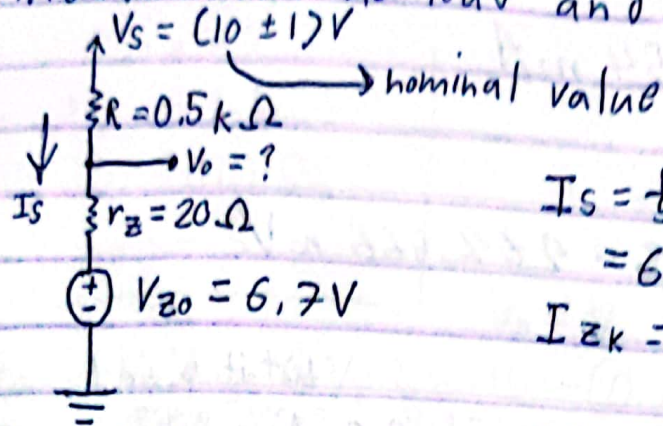 and
Vs = (10 ± 1) V
nominal value
R = 0.5 kΩ
Vo = ?
Is
rz = 20 Ω
Is =
= 6
+
-
Vzo = 6,7V
Izk =